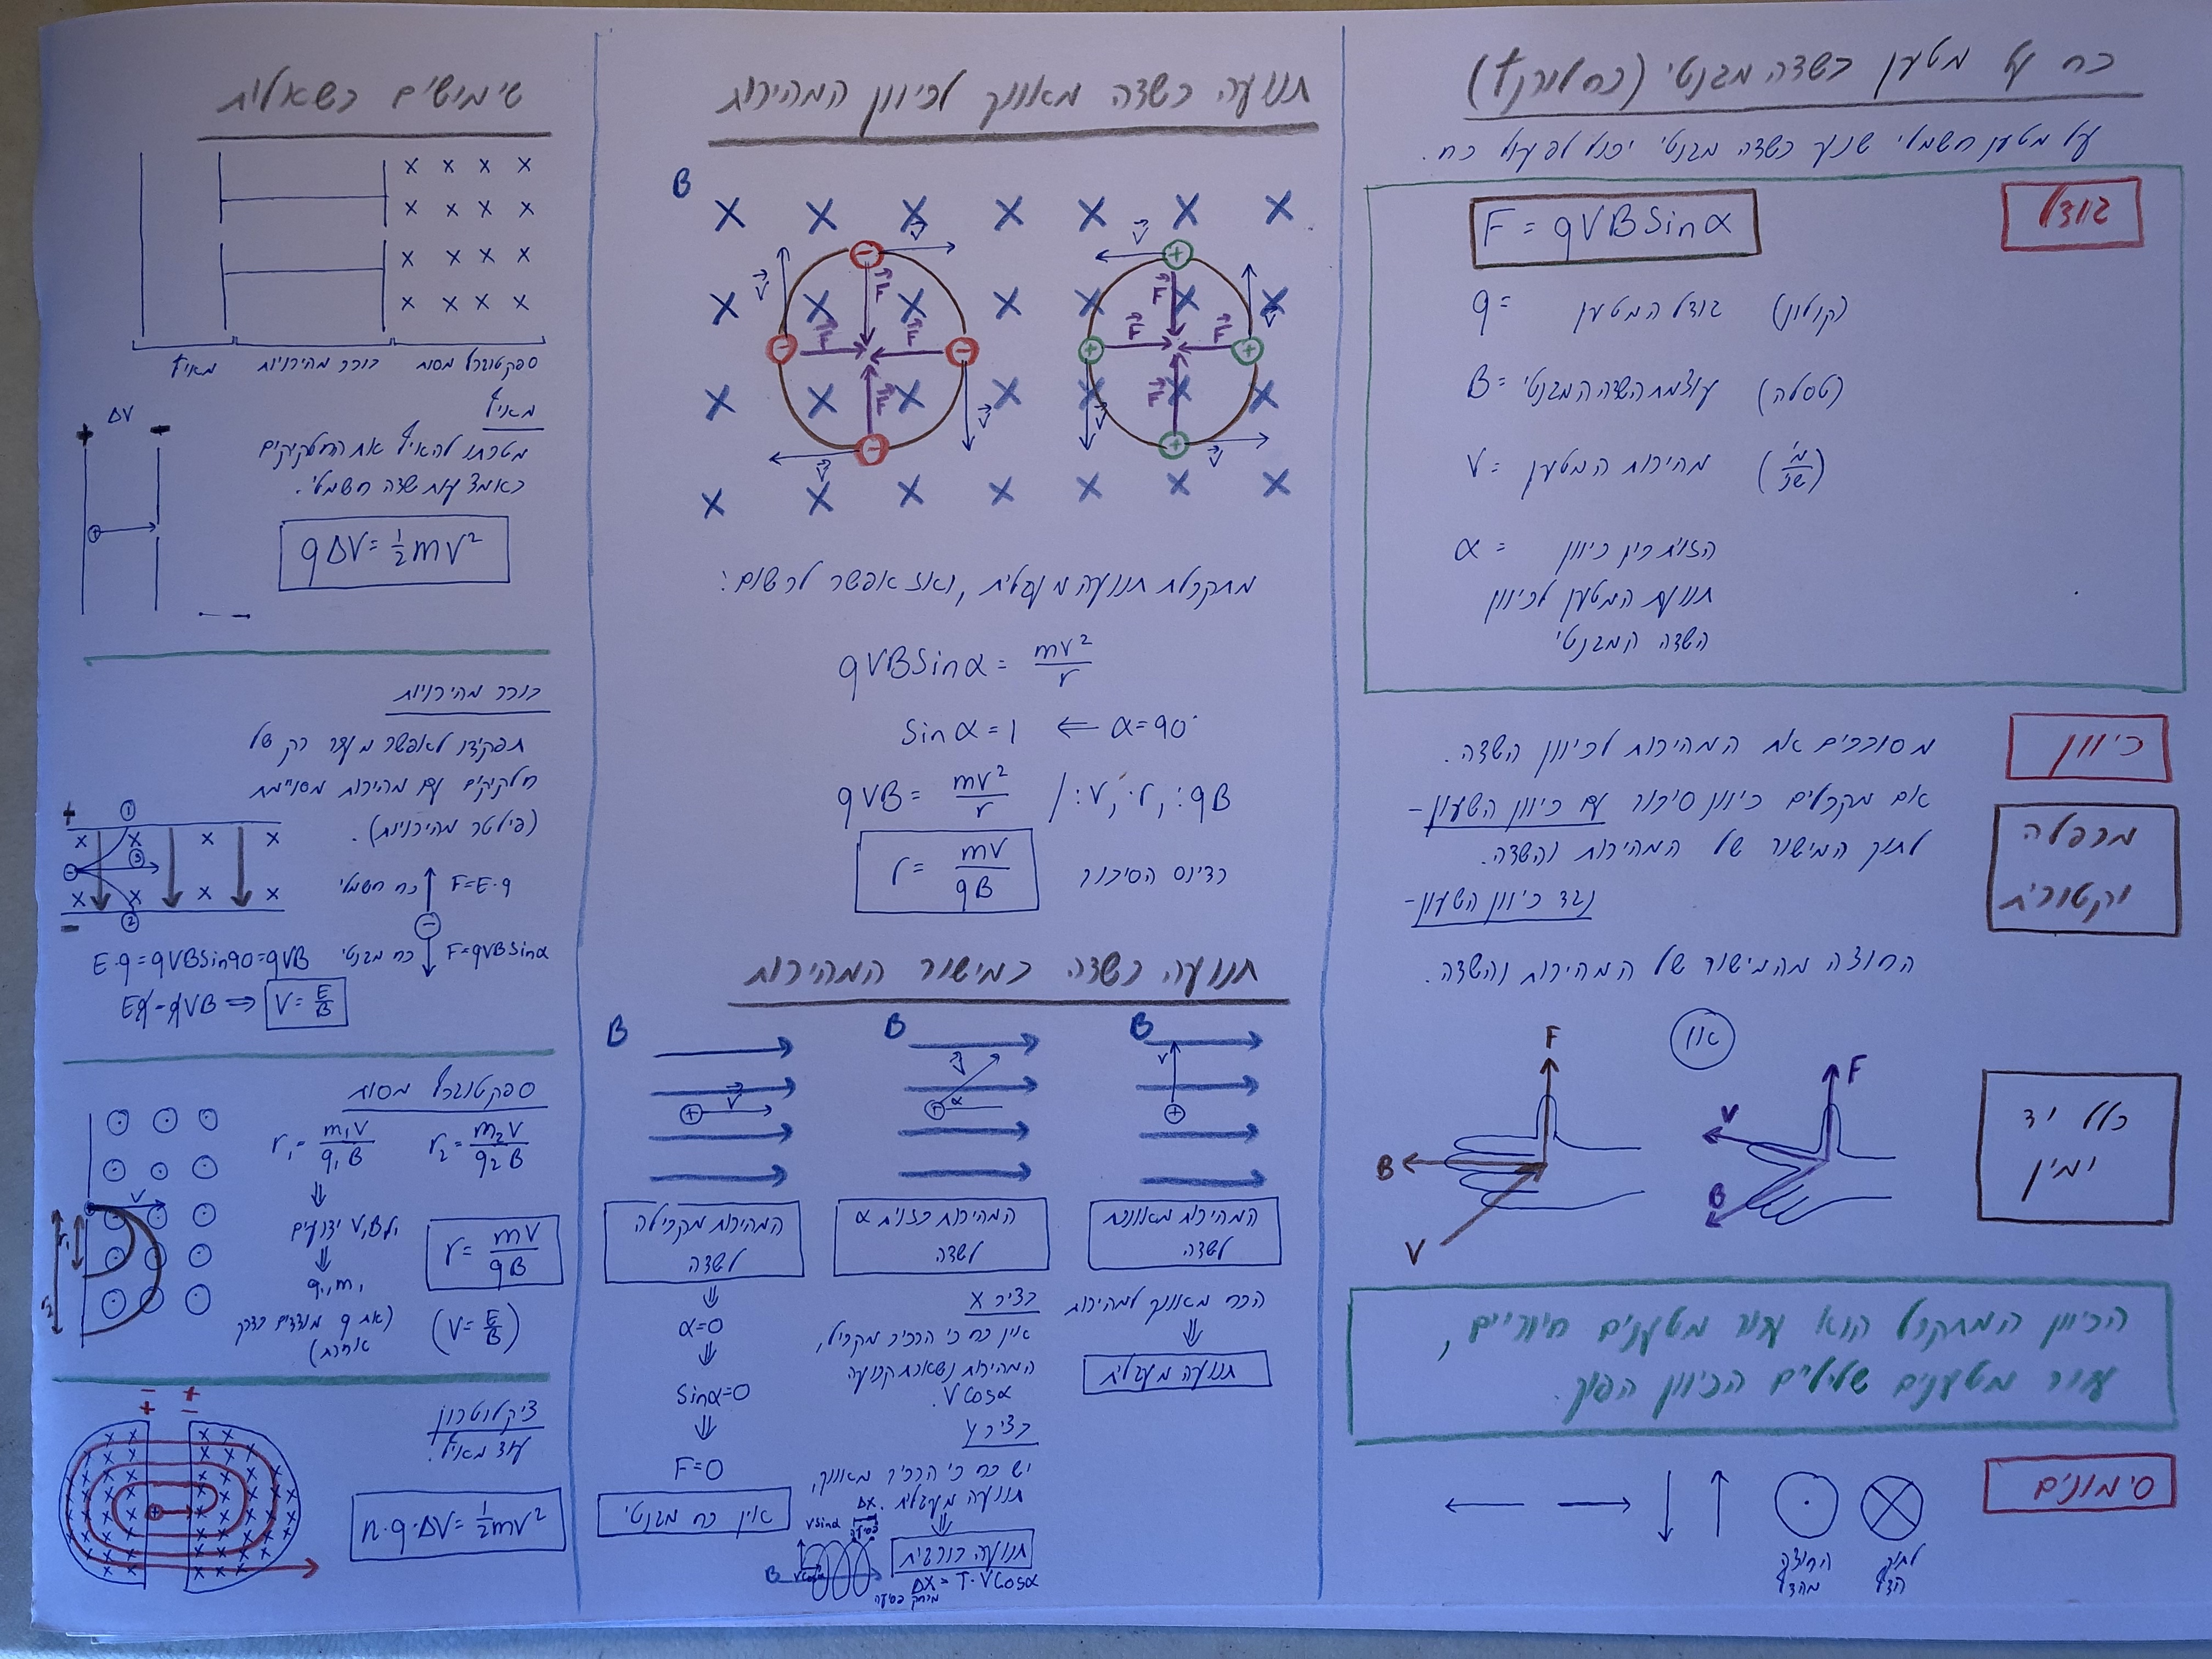 כח על מטען בשדה מגנטי (כח לורנץ)
על מטען חשמלי שנע בשדה מגנטי יכול לפעול כח.
גודל
F = qVBSinα
q = גודל המטען (קולון)
B = עוצמת השדה המגנטי (טסלה)
V = מהירות המטען (מ'/שנ')
α = הזוית בין כיוון
תנועת המטען לכיוון
השדה המגנטי
כיוון
מכפלה
וקטורית
מסובבים את המהירות לכיוון השדה.
אם מקבלים כיוון סיבוב עם כיוון השעון-
לתוך המישור של המהירות והשדה.
נגד כיוון השעון-
החוצה מהמישור של המהירות והשדה.
או
כלל יד
ימין
F
B
V
F
V
B
הכיוון המתקבל הוא עבור מטענים חיוביים,
עבור מטענים שליליים הכיוון הפוך.
סימונים
החוצה
מהדף
לתוך
הדף
תנועה בשדה מאונך לכיוון המהירות
B
V V V V
F F F F
V V V V
F F F F
מתקבלת תנועה מעגלית, ואז אפשר לרשום:
qVBSinα = mv²/r
Sinα=1 ⇐ α=90°
qVB = mv²/r /:v, ·r, :qB
r = mv/qB רדיוס הסיבוב
תנועה בשדה במישור המהירות
B B B
V V α V
המהירות מאונכת
לשדה
הכח מאונך למהירות
⇓
תנועה מעגלית
המהירות בזוית α
לשדה
בציר X
אין כח כי הרכיב מקביל,
המהירות נשארת קבועה
VCosα.
בציר Y
יש כח כי הרכיב מאונך,
תנועה מעגלית.
⇓
תנועה בורגית
ΔX = T·VCosα
ΔX
VSinα
VCosα
B
המהירות מקבילה
לשדה
⇓
α=0
⇓
Sinα=0
⇓
F=0
אין כח מגנטי
שימושים בשאלות
מאיץ בורר מהירויות ספקטוגרף מסות
מאיץ
מטרתו להאיץ את החלקיקים
באמצעות שדה חשמלי.
qΔV = ½mV²
ΔV
+ -
בורר מהירויות
תפקידו לאפשר מעבר רק של
חלקיקים עם מהירות מסויימת
(פילטר מהירויות).
+
1
3
2
-
כח חשמלי F=E·q
כח מגנטי F=qVBSinα
E·q = qVBSin90 = qVB
Eq = qVB ⇒ V = E/B
ספקטוגרף מסות
r₁ = m₁V/q₁B r₂ = m₂V/q₂B
⇓
V,B,r₁ ידועים
⇓
q₁,m₁
(את q מודדים בדרך
אחרת)
r = mV/qB
(V = E/B)
V
r₁
r₂
ציקלוטרון
עוד מאיץ.
n·q·ΔV = ½mV²
- +
+ -